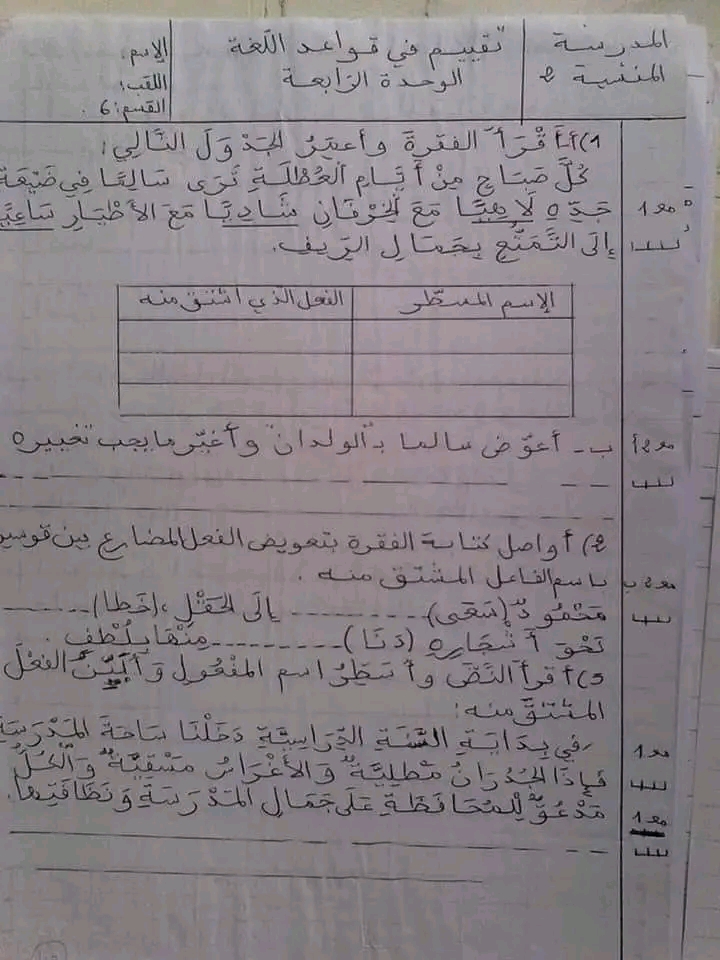 المدرسة
المنشية 2
تقييم في قواعد اللغة
الوحدة الرابعة
الإسم:
اللقب:
القسم: 6
1) أ- أَقْرَأُ الفقرةَ وأعمّرُ الجَدْوَلَ التَّالِي:
كُلَّ صَبَاحٍ مِنْ أَيَّامِ العُطْلَةِ تَرَى سَالِمًا فِي ضَيْعَةِ
جَدِّهِ لَاهِيًا مَعَ الخِرْفَانِ شَادِيًا مَعَ الأَطْيَارِ سَاعِيًا
إِلَى التَّمَتُّعِ بِجَمَالِ الرِّيفِ.
مع 1
الإسم المسطّر
الفعل الذي اشتق منه
مع 2 أ
ب- أعوّض سالما بـ "الولدان" وأغيّر ما يجب تغييره
2) أواصل كتابة الفقرة بتعويض الفعل المضارع بين قوسين
مع 2 ب
باسم الفاعل المشتق منه.
مَحْمُودٌ (سَعَى) ---------- إِلَى الحَقْلِ، (خَطَا) --------
نَحْوَ أَشْجَارِهِ (دَنَا) ---------- مِنْهَا بِلُطْفٍ.
3) أقرأ النّصّ وأسَطِّرُ اسم المفعول وَأُبَيِّنُ الفعْلَ
المشتقَّ منه:
في بِدَايَةِ السَّنَةِ الدِّرَاسِيَّةِ دَخَلْنَا سَاحَةَ المَدْرَسَةِ
مع 1
فَإِذَا الجُدْرَانُ مَطْلِيَّةٌ وَالأَغْرَاسُ مَسْقِيَّةٌ وَالْكُلُّ
مَدْعُوٌّ لِلمُحَافَظَةِ عَلَى جَمَالِ المَدْرَسَةِ وَنَظَافَتِهَا.
مع 1